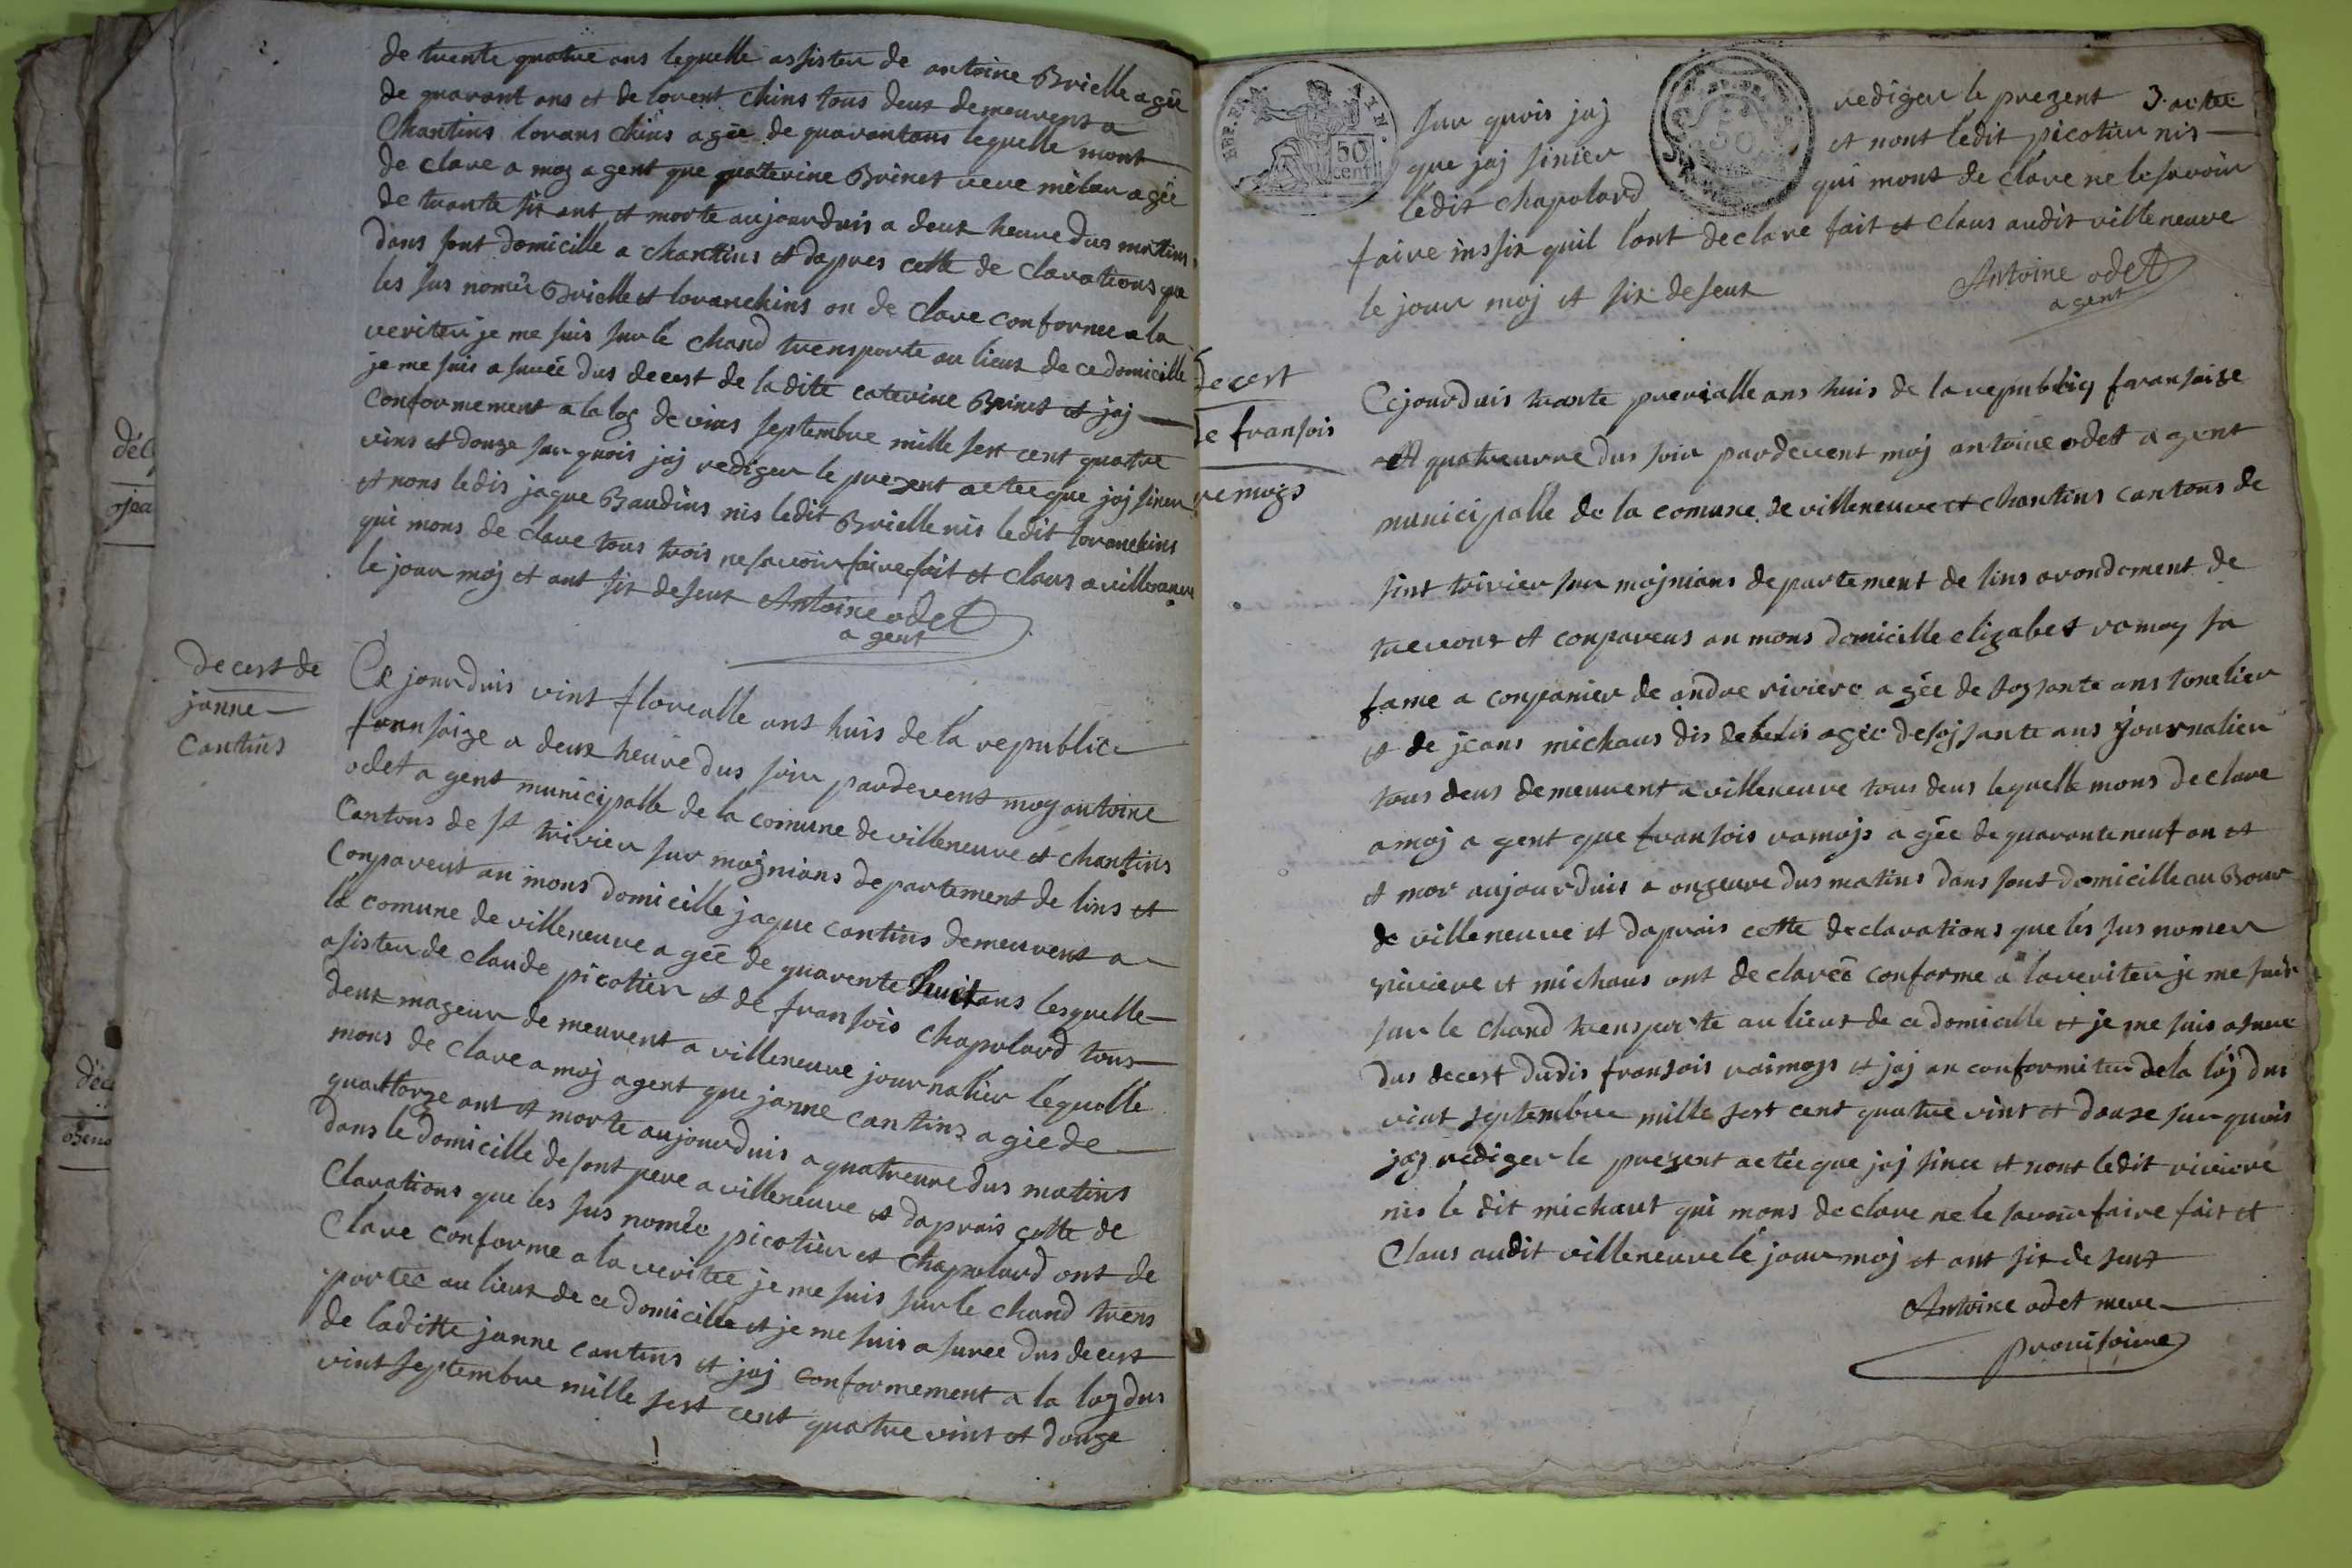 de trente quatre ans lequelle assister de antoine Brielle agée
de quarant ans et de lorent Chins tous deux demeurent a
Chantins lorans Chins agée de quarantans lequelle mont
de clare a moy agent que quaterine Brinet veve mélan agée
de trante six ant et morte aujourduis a deux heure dus matins
dans sont domicille a chantins et dapres cette de clarations que
les sus nomée Brielle et loranchins on de Clare conformee a la
veriter je me suis sur le chand trensporte au lieux de ce domicille
je me suis asurée dus decest de ladite caterine Brinet et jaj
conformement a la loy de vins septembre mille sext cent quatre
vins et douze sur quois jaj rediger le prezent actee que jaj siner
et nons ledis jaque Baudins nis ledit Brielle nis ledit loranchins
qui mons de clare tous trois ne savoir faire fait et claus a villeneuve
le jour moj et ant six deseux Antoine odet
agent
decest de
janne
Cantins
Ce jourduis vint florealle ans huis de la republice
fransaize a deux heure dus soir pardevent moy antoine
odet agent municipalle de la comune de villeneuve et chantins
Cantons de st trivier sur mojnians departement de lins et
Conparent an mons domicille jaque cantins demeurent a
la comune de villeneuve agée de quarente huit ans lesquelle
asister de claude picotier et de fransois Chapolard tous
deux mageur demeurent a villeneuve journalier lequelle
mons de clare a moj agent que janne cantins agie de
quattorze ant et morte aujourduis a quatreure dus matins
dans le domicille de sont pere a villeneuve et daprais cette de
Clarations que les sus nomée picotier et chapolard ont de
Clare conforme a la veritee je me suis sur le chand trens
portee au lieux de ce domicille et je me suis asuree dus decest
de laditte janne cantins et jaj conformement a la loy dus
vint septembre mille sext cent quatre vint et douze
50
cent
sur quois jaj rediger le prezent 3 actee
que jaj sinier et nont ledit picotier nis
ledit chapolard qui mons de clare ne le savoir
faire inssis quil lont declare fait et claus audit villeneuve
le jour moj et six deseux
Antoine odet
agent
decest
de fransois
remojs
Cejourduis trante prerialle ans huis de la republiq fransaize
A quatreurre dus soir pardevent moj antoine odet agent
municipalle de la comune de villeneuve et chantins cantons de
sint trivier sur mojnians departement de lins arondement de
trevoux et conparens an mons domicille elizabet ramoy sa
fame a conpanier de andre riviere agée de soysante ans tonelier
et de jeans michaus dis debelis agée desojsante ans journalier
tous deus demeurent a villeneuve tous deus lequelle mons declare
a moj agent que fransois ramojs agée de quarante neuf an et
et mor aujourduis a onzeure dus matins dans sont domicille au Bour
de villeneuve et daprais cette declarations que les sus nomer
riviere et michaus ont declaréé conforme a laveriter je me suis
sur le chand trensporte au lieux de ce domicille et je me suis asure
dus decest dudis fransois raimojs et jaj an conformiter dela loj dus
vint septembre mille sext cent quatre vint et douze sur quois
jaj rediger le prezent actée que jaj sinee et nont ledit riviere
nis le dit michaut qui mons declare ne le savoir faire fait et
Claus audit villeneuve le jour moj et ant six deseux
Antoine odet mere
provisoire